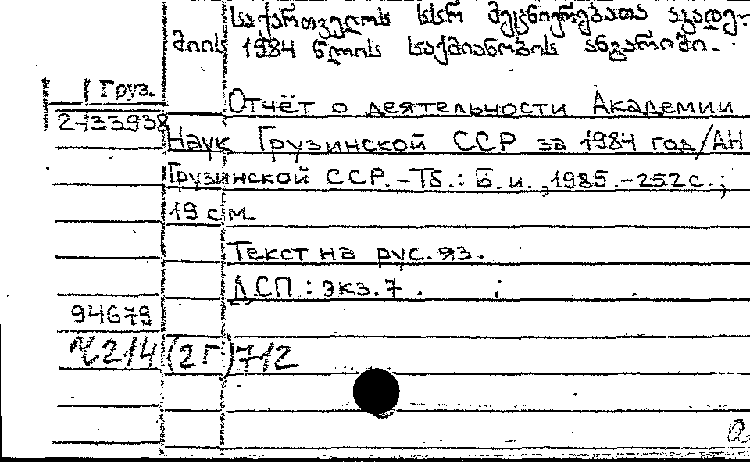 საქართველოს სსრ მეცნიერებათა აკადე-
მიის 1984 წლის საქმიანობის ანგარიში.
Груз.
2-133938
Отчёт о деятельности Академии
Наук Грузинской ССР за 1984 год/АН
Грузинской ССР.-Тб.: Б.и., 1985.-252с.;
19 см.
Текст на рус. яз.
ДСП: экз.7.
94679
Ч214(2Г)712